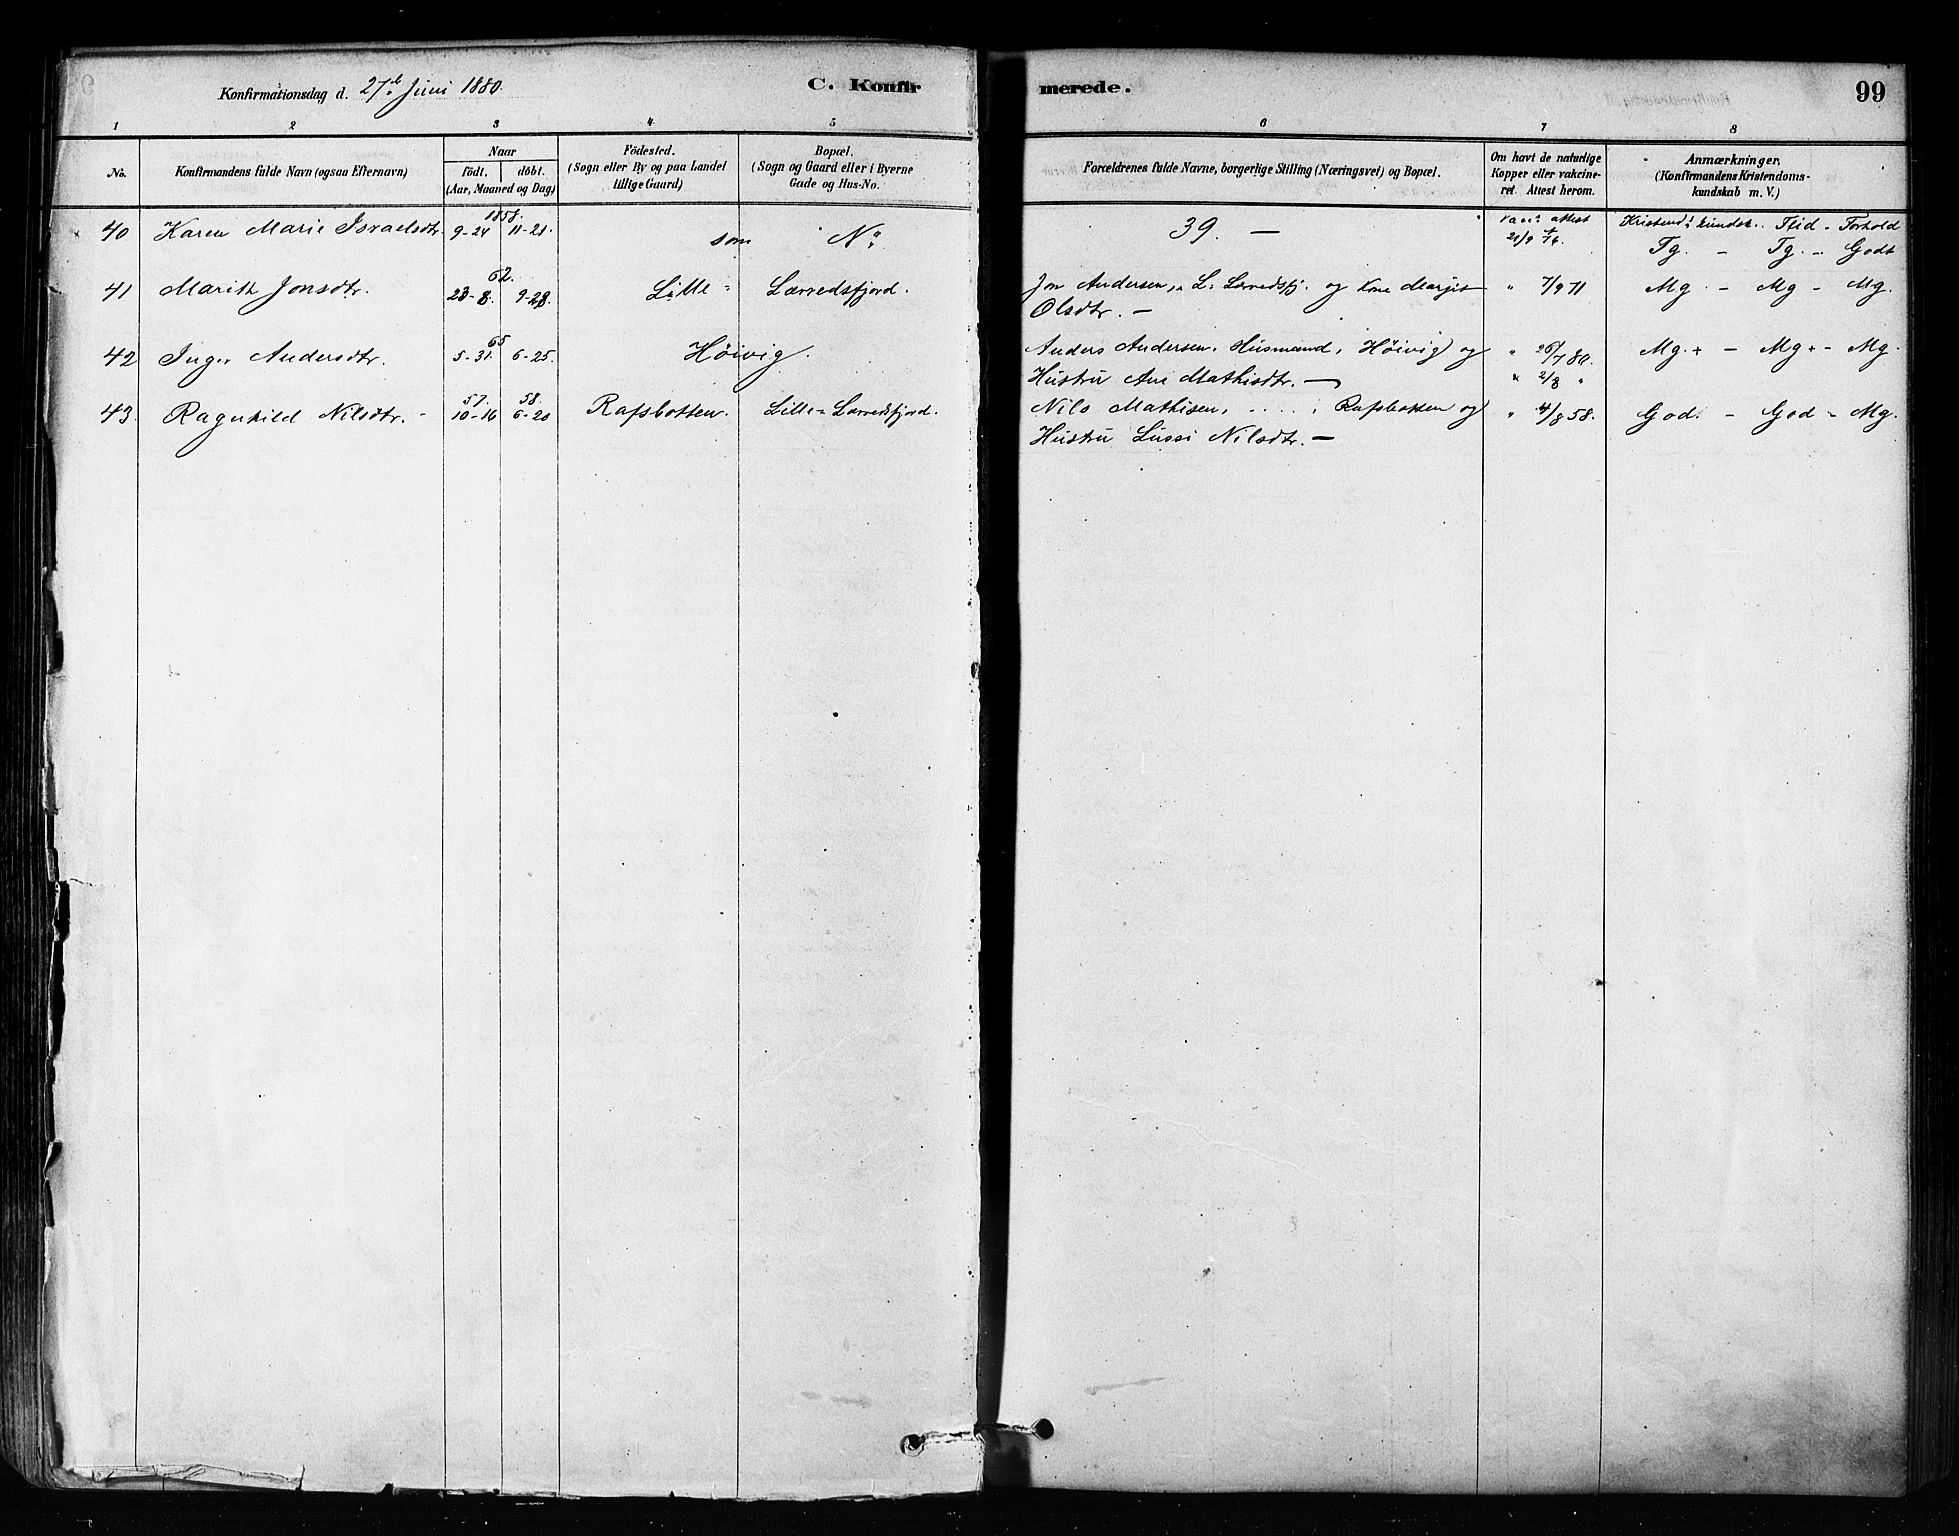 Konfirmationsdag d. 27d. Juni 1880.
C. Konfir
merede.
99
1 2 3 4 5 6 7 8
No. Konfirmandens fulde Navn (ogsaa Efternavn) Naar födt. döbt. (Aar, Maaned og Dag) Födested. (Sogn eller By og paa Landet tillige Gaard) Bopæl. (Sogn og Gaard eller i Byerne Gade og Hus-No. Forældrenes fulde Navne, borgerlige Stilling (Næringsvei) og Bopæl. Om havt de naturlige Kopper eller vakcineret. Attest herom. Anmærkninger. (Konfirmandens Kristendomskundskab m. V.)
40 Karen Marie Israelsdtr. 1858. 9-24 11-21. som No 39. — attest 21/9 Kristend. kundsk. Flid - Forhold
Tg. - Tg. - Godt
41 Marith Jonsdtr. 62. 23-8. 9-28. Lille - Lerredsfjord. Jon Andersen, L. Lerredsfj. og Kone Marjit " 7/9 71 Mg. - Mg - Mg.
Olsdtr. —
42 Inger Andersdtr. 65 5-31. 6-25. Höivig. Anders Andersen, Husmand, Höivig og " 26/7 80. Mg.+ - Mg+- Mg.
Hustru Ane Mathisdtr. — " 2/8 "
43. Ragnhild Nilsdtr. - 57. 10-16 58. 6-20 Rafsbotten. Lille - Lerredsfjord. Nils Mathisen, . . . . , Rafsbotten og " 4/8 58. God. - God - Mg.
Hustru Lussi Nilsdtr. —